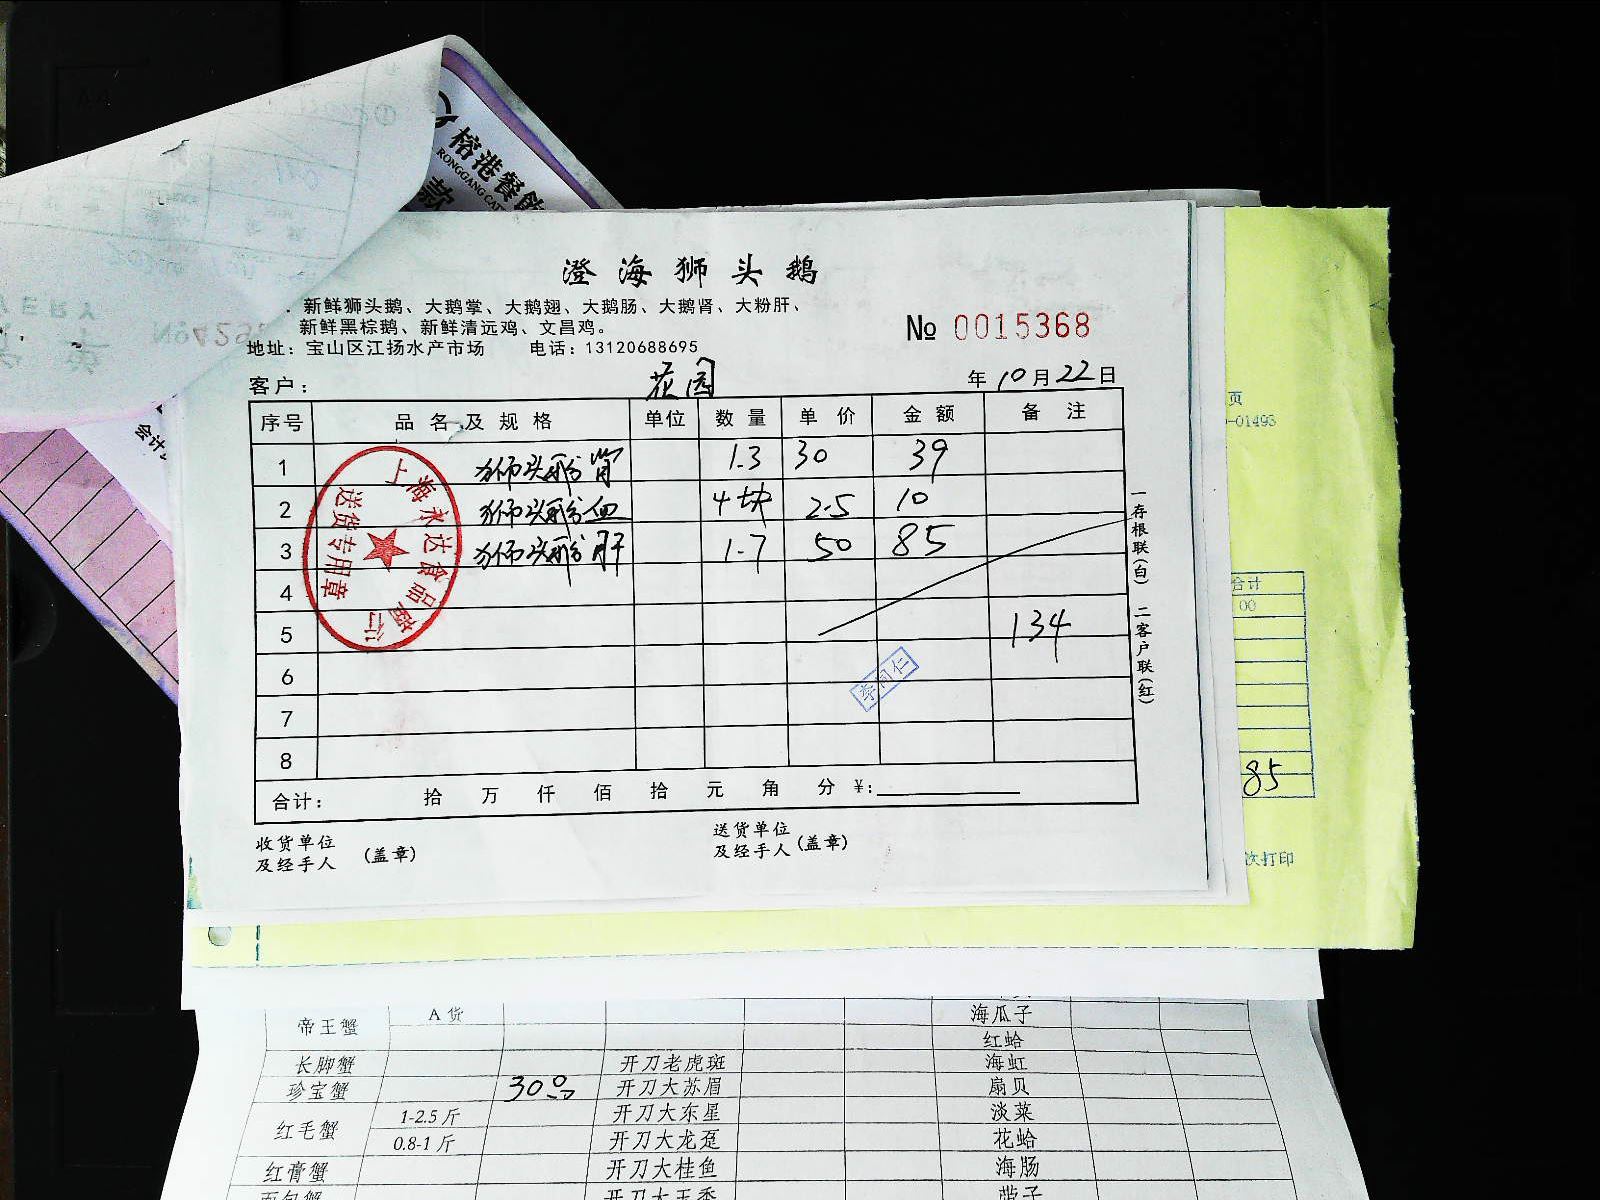 榕港餐飲
RONGGANG CAT
款
会计
No429
澄海狮头鹅
新鲜狮头鹅、大鹅掌、大鹅翅、大鹅肠、大鹅肾、大粉肝、
新鲜黑棕鹅、新鲜清远鸡、文昌鸡。
地址：宝山区江扬水产市场 电话：13120688695
№ 0015368
客户： 花园 年10月22日
序号 品名及规格 单位 数量 单价 金额 备注
1 狮头鹅肾 1.3 30 39
2 狮头鹅血 4块 2.5 10
3 狮头鹅肝 1.7 50 85
4
5 134
6
7
8
合计： 拾 万 仟 佰 拾 元 角 分 ¥：
收货单位
及经手人 (盖章)
送货单位
及经手人 (盖章)
上海永达食品商行
送货专用章
李同仁
一存根联(白) 二客户联(红)
页
-01493
合计
00
85
次打印
帝王蟹 A货 海瓜子
红蛤
长脚蟹 开刀老虎斑 海虹
珍宝蟹 300 开刀大苏眉 扇贝
红毛蟹 1-2.5斤 开刀大东星 淡菜
0.8-1斤 开刀大龙趸 花蛤
红膏蟹 开刀大桂鱼 海肠
面包蟹 开刀大玉秃 带子